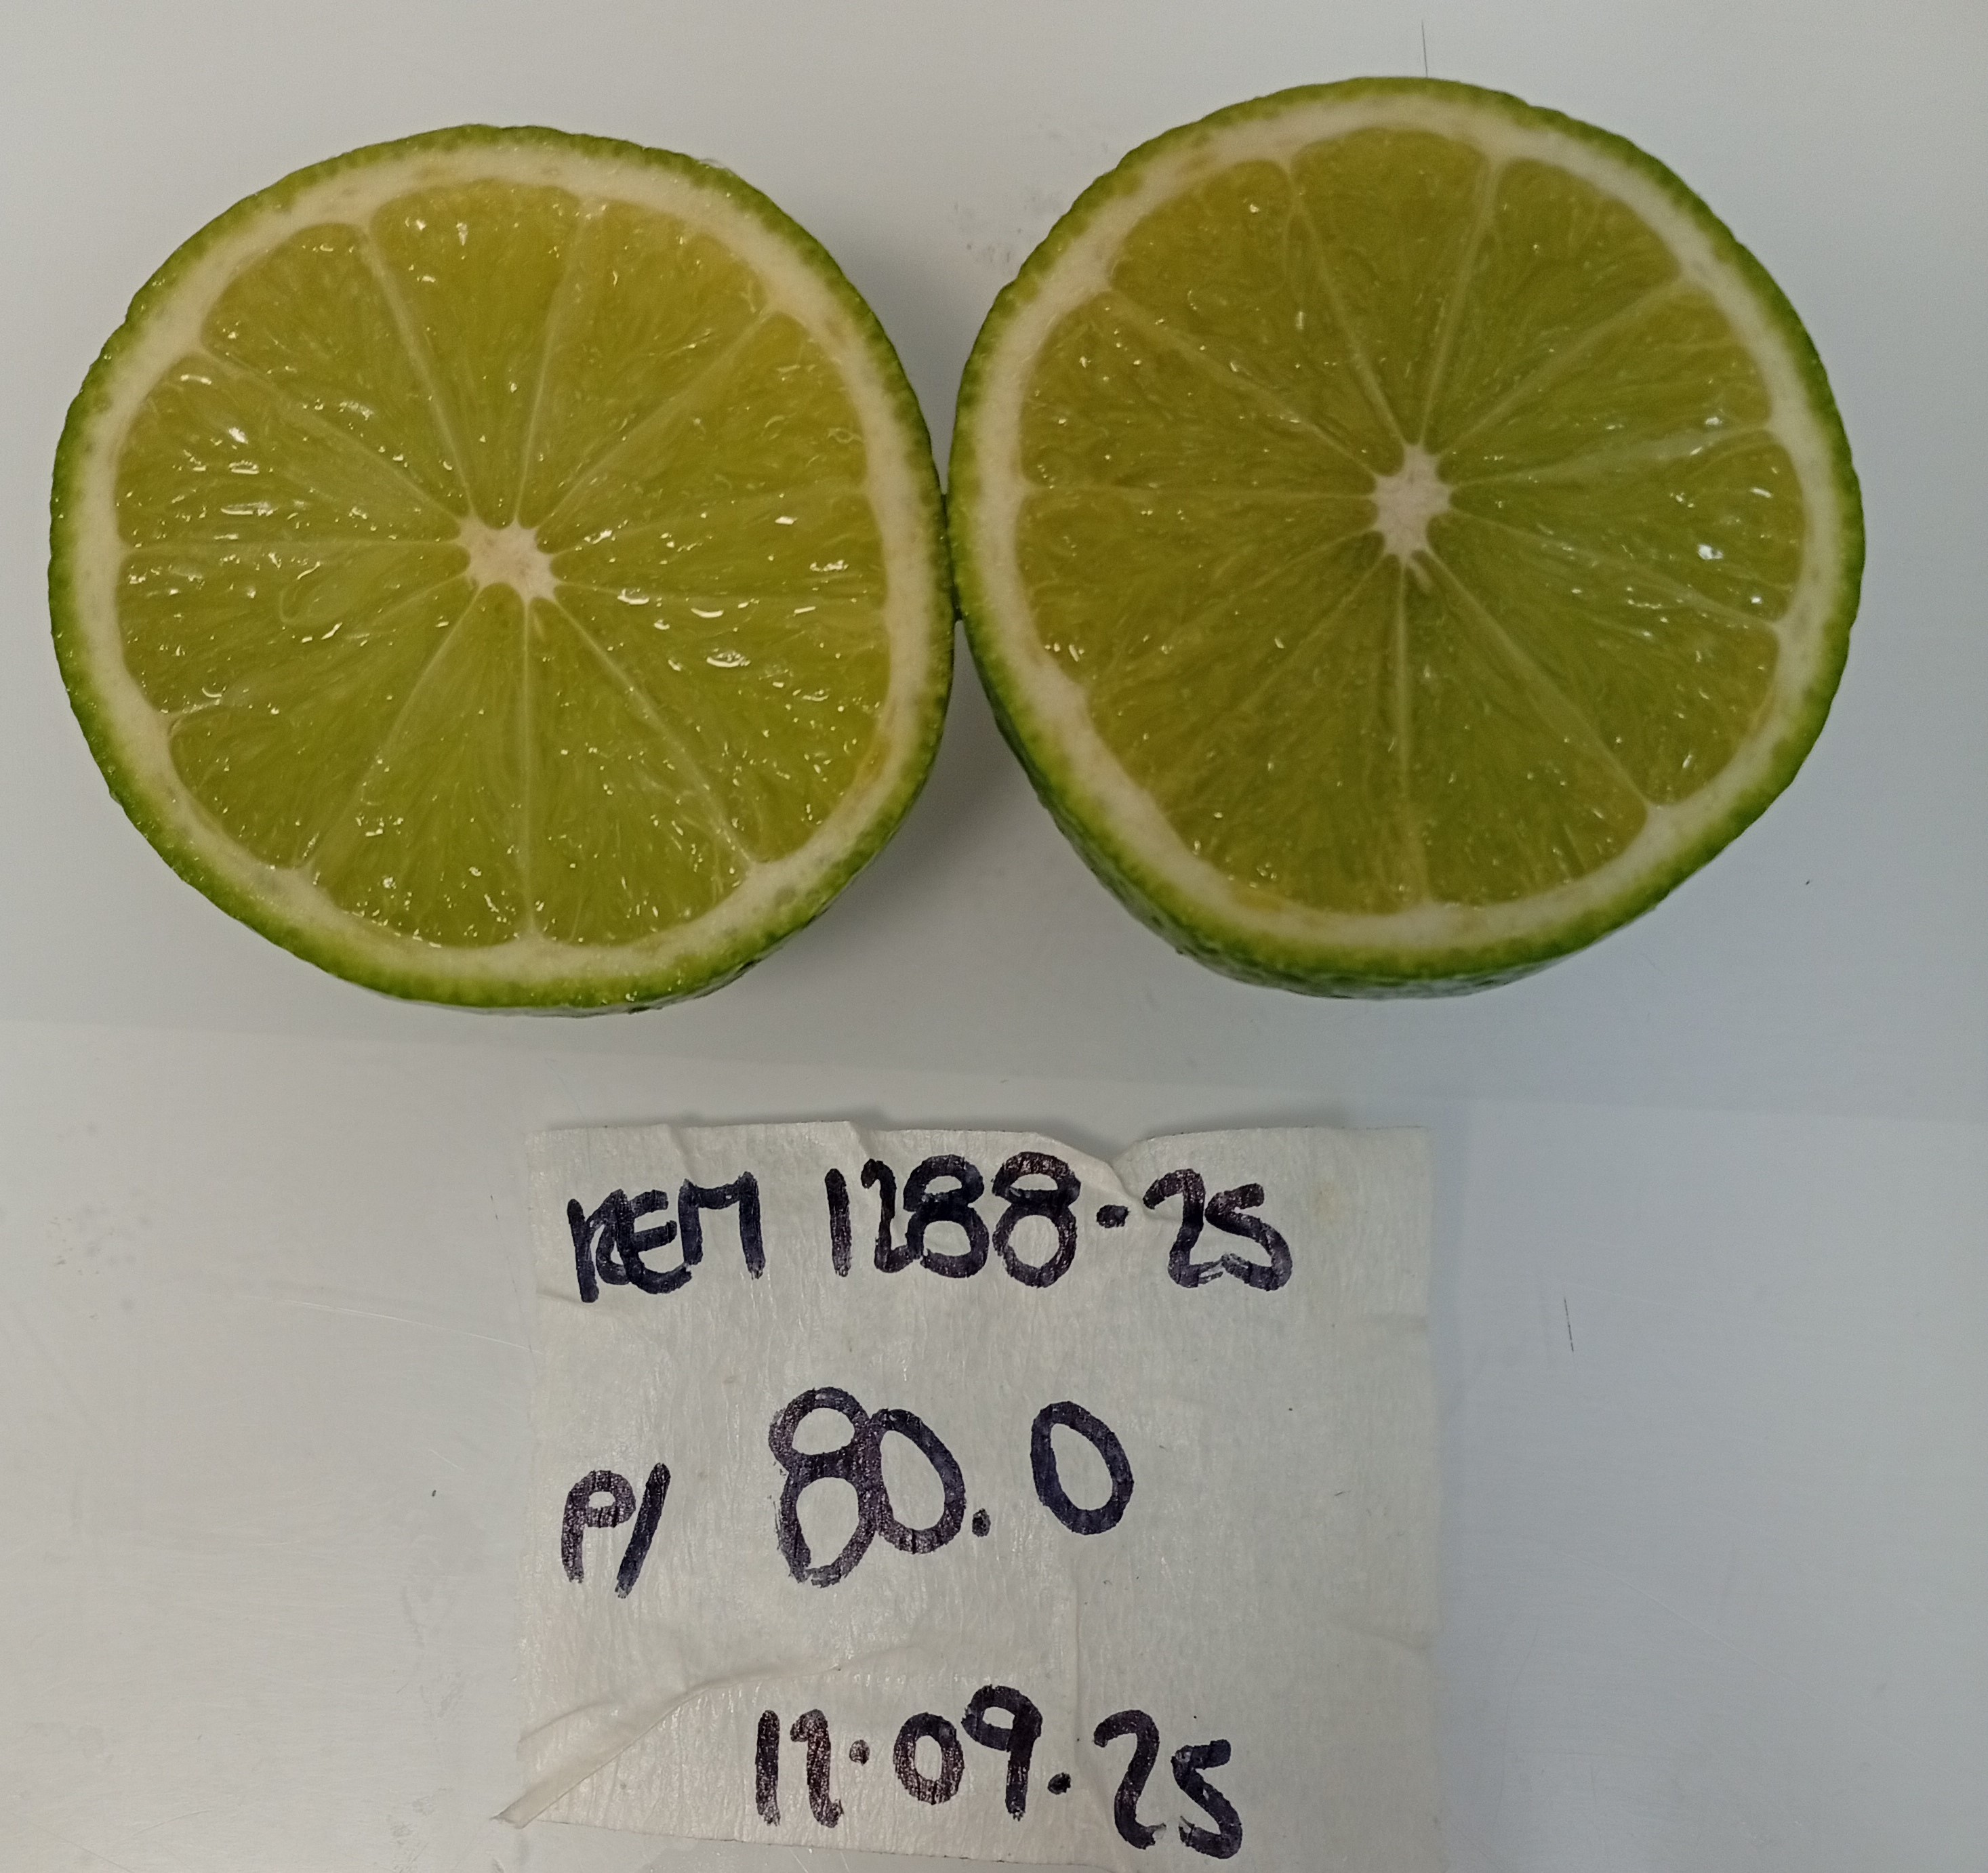 REM 1288-25
P/ 80.0
12.09.25